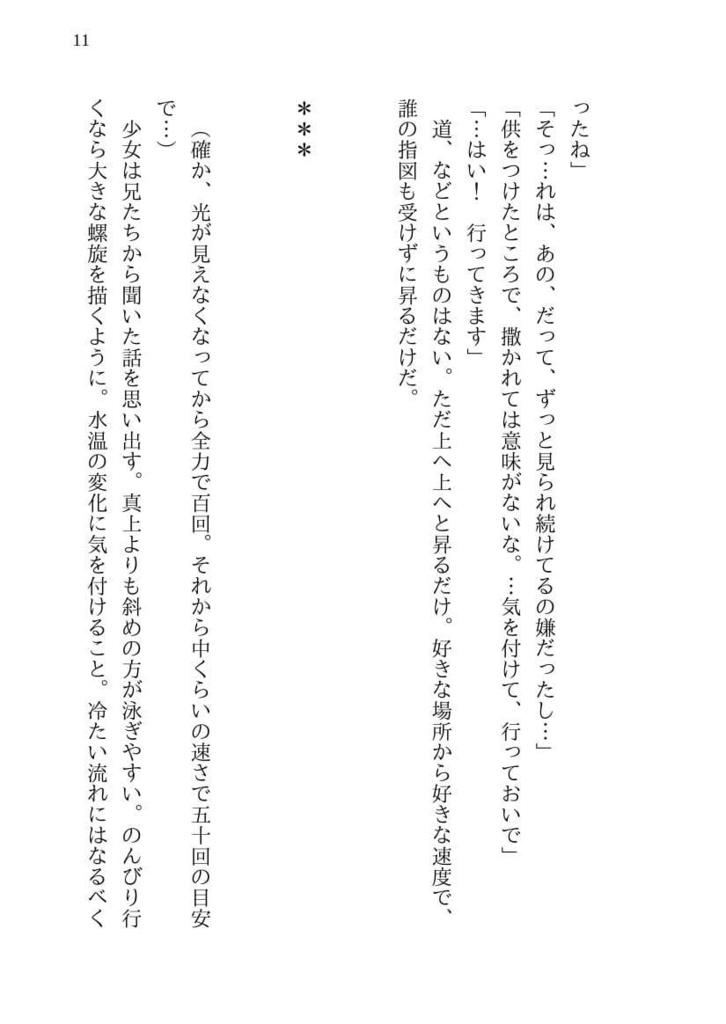 11
ったね」
「そっ…れは、あの、だって、ずっと見られ続けてるの嫌だったし…」
「供をつけたところで、撒かれては意味がないな。…気を付けて、行っておいで」
「…はい！　行ってきます」
　道、などというものはない。ただ上へ上へと昇るだけ。好きな場所から好きな速度で、
誰の指図も受けずに昇るだけだ。
＊＊＊
（確か、光が見えなくなってから全力で百回。それから中くらいの速さで五十回の目安
で…）
　少女は兄たちから聞いた話を思い出す。真上よりも斜めの方が泳ぎやすい。のんびり行
くなら大きな螺旋を描くように。水温の変化に気を付けること。冷たい流れにはなるべく